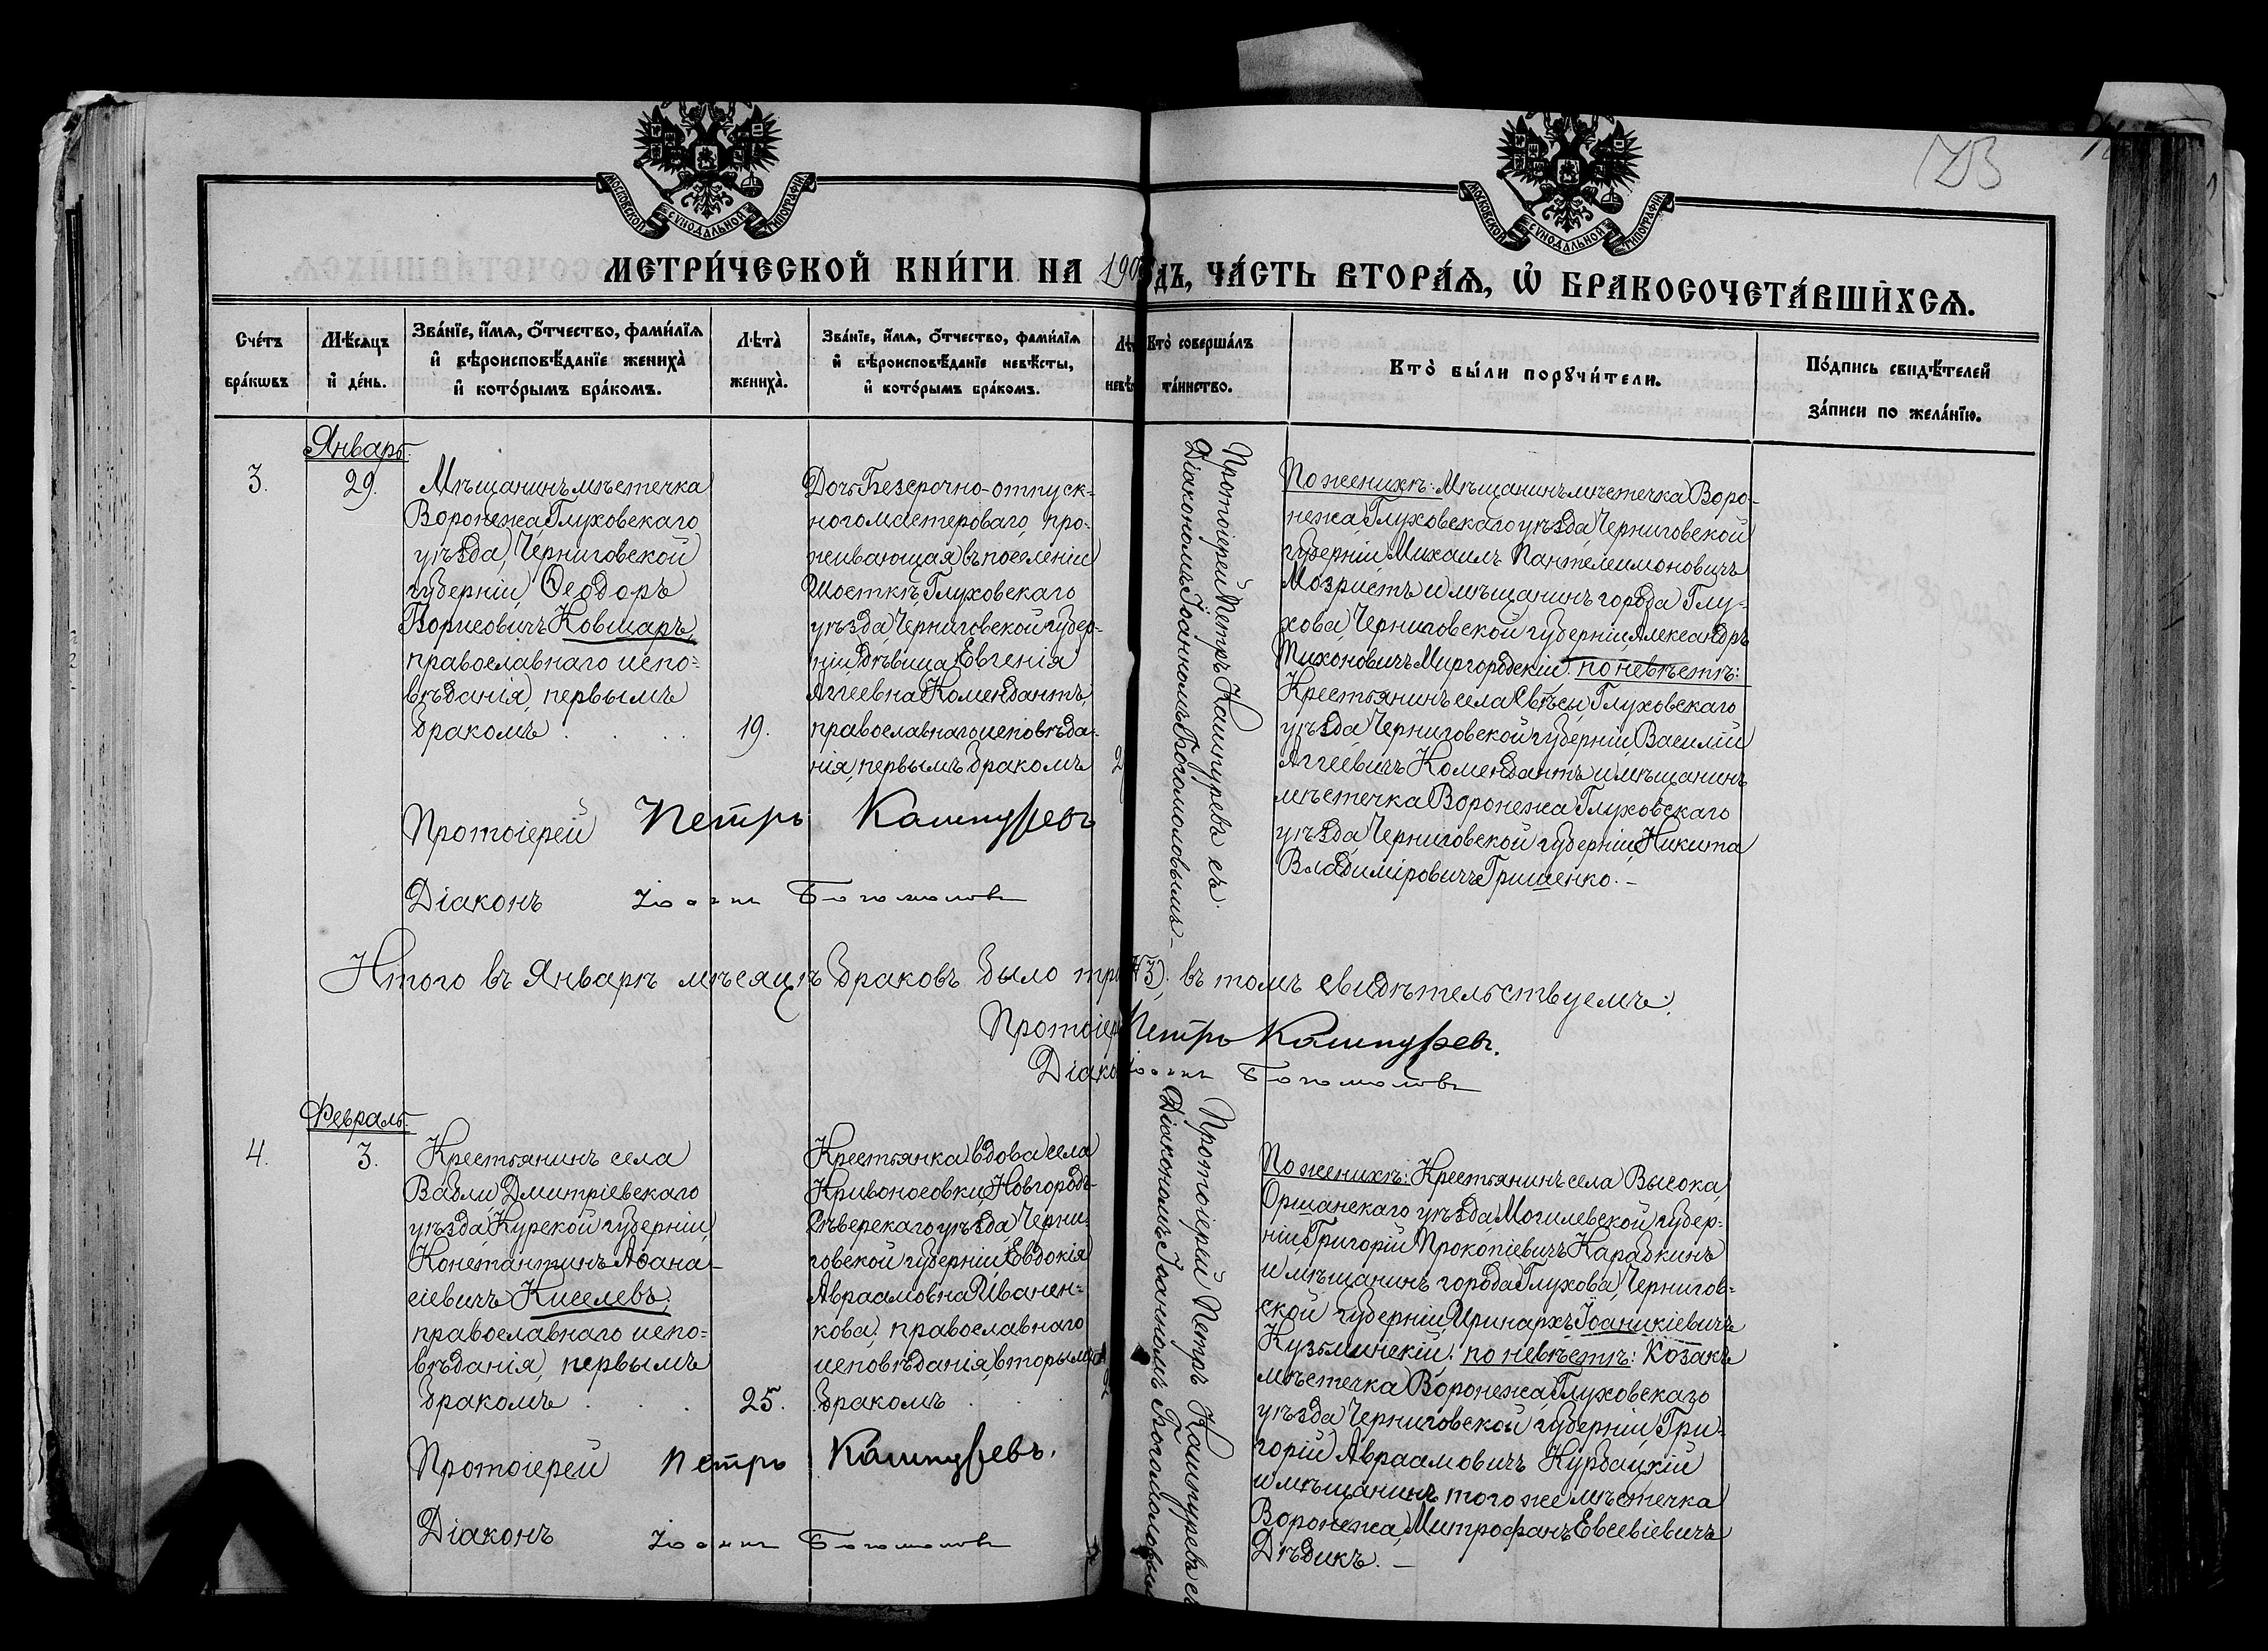 МОСКОВСКОЙ СѴНОДАЛЬНОЙ ТИПОГРАФІИ
МОСКОВСКОЙ СѴНОДАЛЬНОЙ ТИПОГРАФІИ
МЕТРИ́ЧЕСКОЙ КНИ́ГИ НА 190
дъ, ЧА́СТЬ ВТОРА́Ѧ, Ѡ҆ БРАКОСОЧЕТА́ВШИХСѦ.
Сче́тъ бра́кѡвъ
Мѣ́сѧцъ и҆ де́нь.
Зва́нїе, и҆́мѧ, ѻ҆́тчество, фами́лїѧ и҆ вѣроисповѣ́данїе женихà и҆ кото́рымъ бра́комъ.
Лѣ́тà женихà.
Зва́нїе, и҆́мѧ, ѻ҆́тчество, фами́лїѧ и҆ вѣроисповѣ́данїе невѣ́сты, и҆ кото́рымъ бра́комъ.
Кто̀ соверша́лъ та́инство.
Кто̀ бы́ли порꙋчи́тели.
По́дпись свидѣ́телей за́писи по жела́нїю.
Январь.
3.
29.
Мѣщанинъ мѣстечка
Воронежа, Глуховскаго
уѣзда, Черниговской
губерніи, Ѳеодоръ
Борисовичъ Ковшаръ,
православнаго испо=
вѣданія, первымъ
бракомъ . . . .
19.
Дочь Безсрочно-отпуск=
ного мастероваго, про=
живающая въ поселеніи
Шосткѣ, Глуховскаго
уѣзда, Черниговской губер=
ніи, дѣвица Евгенія
Аггеевна Комендантъ,
православнаго исповѣда=
нія, первымъ бракомъ
2
Протоіерей Петръ Кашпуревъ съ
Діакономъ Іоанномъ Богомоловымъ –
По женихѣ: Мѣщанинъ мѣстечка Воро-
нежа, Глуховскаго уѣзда, Черниговской
губерніи, Михаилъ Пантелеимоновичъ
Мозристъ и мѣщанинъ города Глу-
хова, Черниговской губерніи, Александръ
Тихоновичъ Миргородскій: по невѣстѣ:
Крестьянинъ села Свѣсы, Глуховскаго
уѣзда, Черниговской губерніи, Василій
Аггеевичъ Комендантъ и мѣщанинъ
мѣстечка Воронежа, Глуховскаго
уѣзда, Черниговской губерніи, Никита
Владиміровичъ Гришенко. –
Протоіерей Петръ Кашпуревъ
Діаконъ Іоаннъ Богомоловъ
Итого въ Январѣ мѣсяцѣ браковъ было три (3); въ томъ свидѣтельствуемъ:
Протоіер Петръ Кашпуревъ.
Діако Іоаннъ Богомоловъ
Февраль.
4.
3.
Крестьянинъ села
Вабли, Дмитріевскаго
уѣзда, Курской губерніи,
Константинъ Аѳана-
сіевичъ Киселевъ,
православнаго испо=
вѣданія, первымъ
бракомъ . . .
25.
Крестьянка вдова села
Кривоносовки, Новгородъ-
Сѣверскаго уѣзда, Черни-
говской губерніи, Евдокія
Авраамовна Иванен=
кова; православнаго
исповѣданія, вторымъ
бракомъ . .
Протоіерей Петръ Кашпуревъ съ
Діакономъ Іоанномъ Богомоловы
По женихѣ: Крестьянинъ села Высока,
Оршанскаго уѣзда, Могилевской губер=
ніи, Григорій Прокопіевичъ Карабкинъ
и мѣщанинъ города Глухова, Чернигов=
ской губерніи, Иринархъ Іоаникіевичъ
Кузьминскій; по невѣстѣ: козакъ
мѣстечка Воронежа, Глуховскаго
уѣзда, Черниговской губерніи, Гри-
горій Авраамовичъ Курбацкій
и мѣщанинъ того же мѣстечка
Воронежа, Митрофанъ Евсевіевичъ
Дѣдикъ. –
Протоіерей Петръ Кашпуревъ.
Діаконъ Іоаннъ Богомоловъ